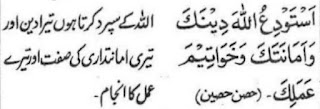 اَسْتَوْدِعُ اللّٰهَ دِيْنَكَ
وَاَمَانَتَكَ وَخَوَاتِيْمَ
عَمَلِكَ۔ (حصن حصین)
اللہ کے سپرد کرتا ہوں تیرا دین اور
تیری امانتداری کی صفت اور تیرے
عمل کا انجام۔